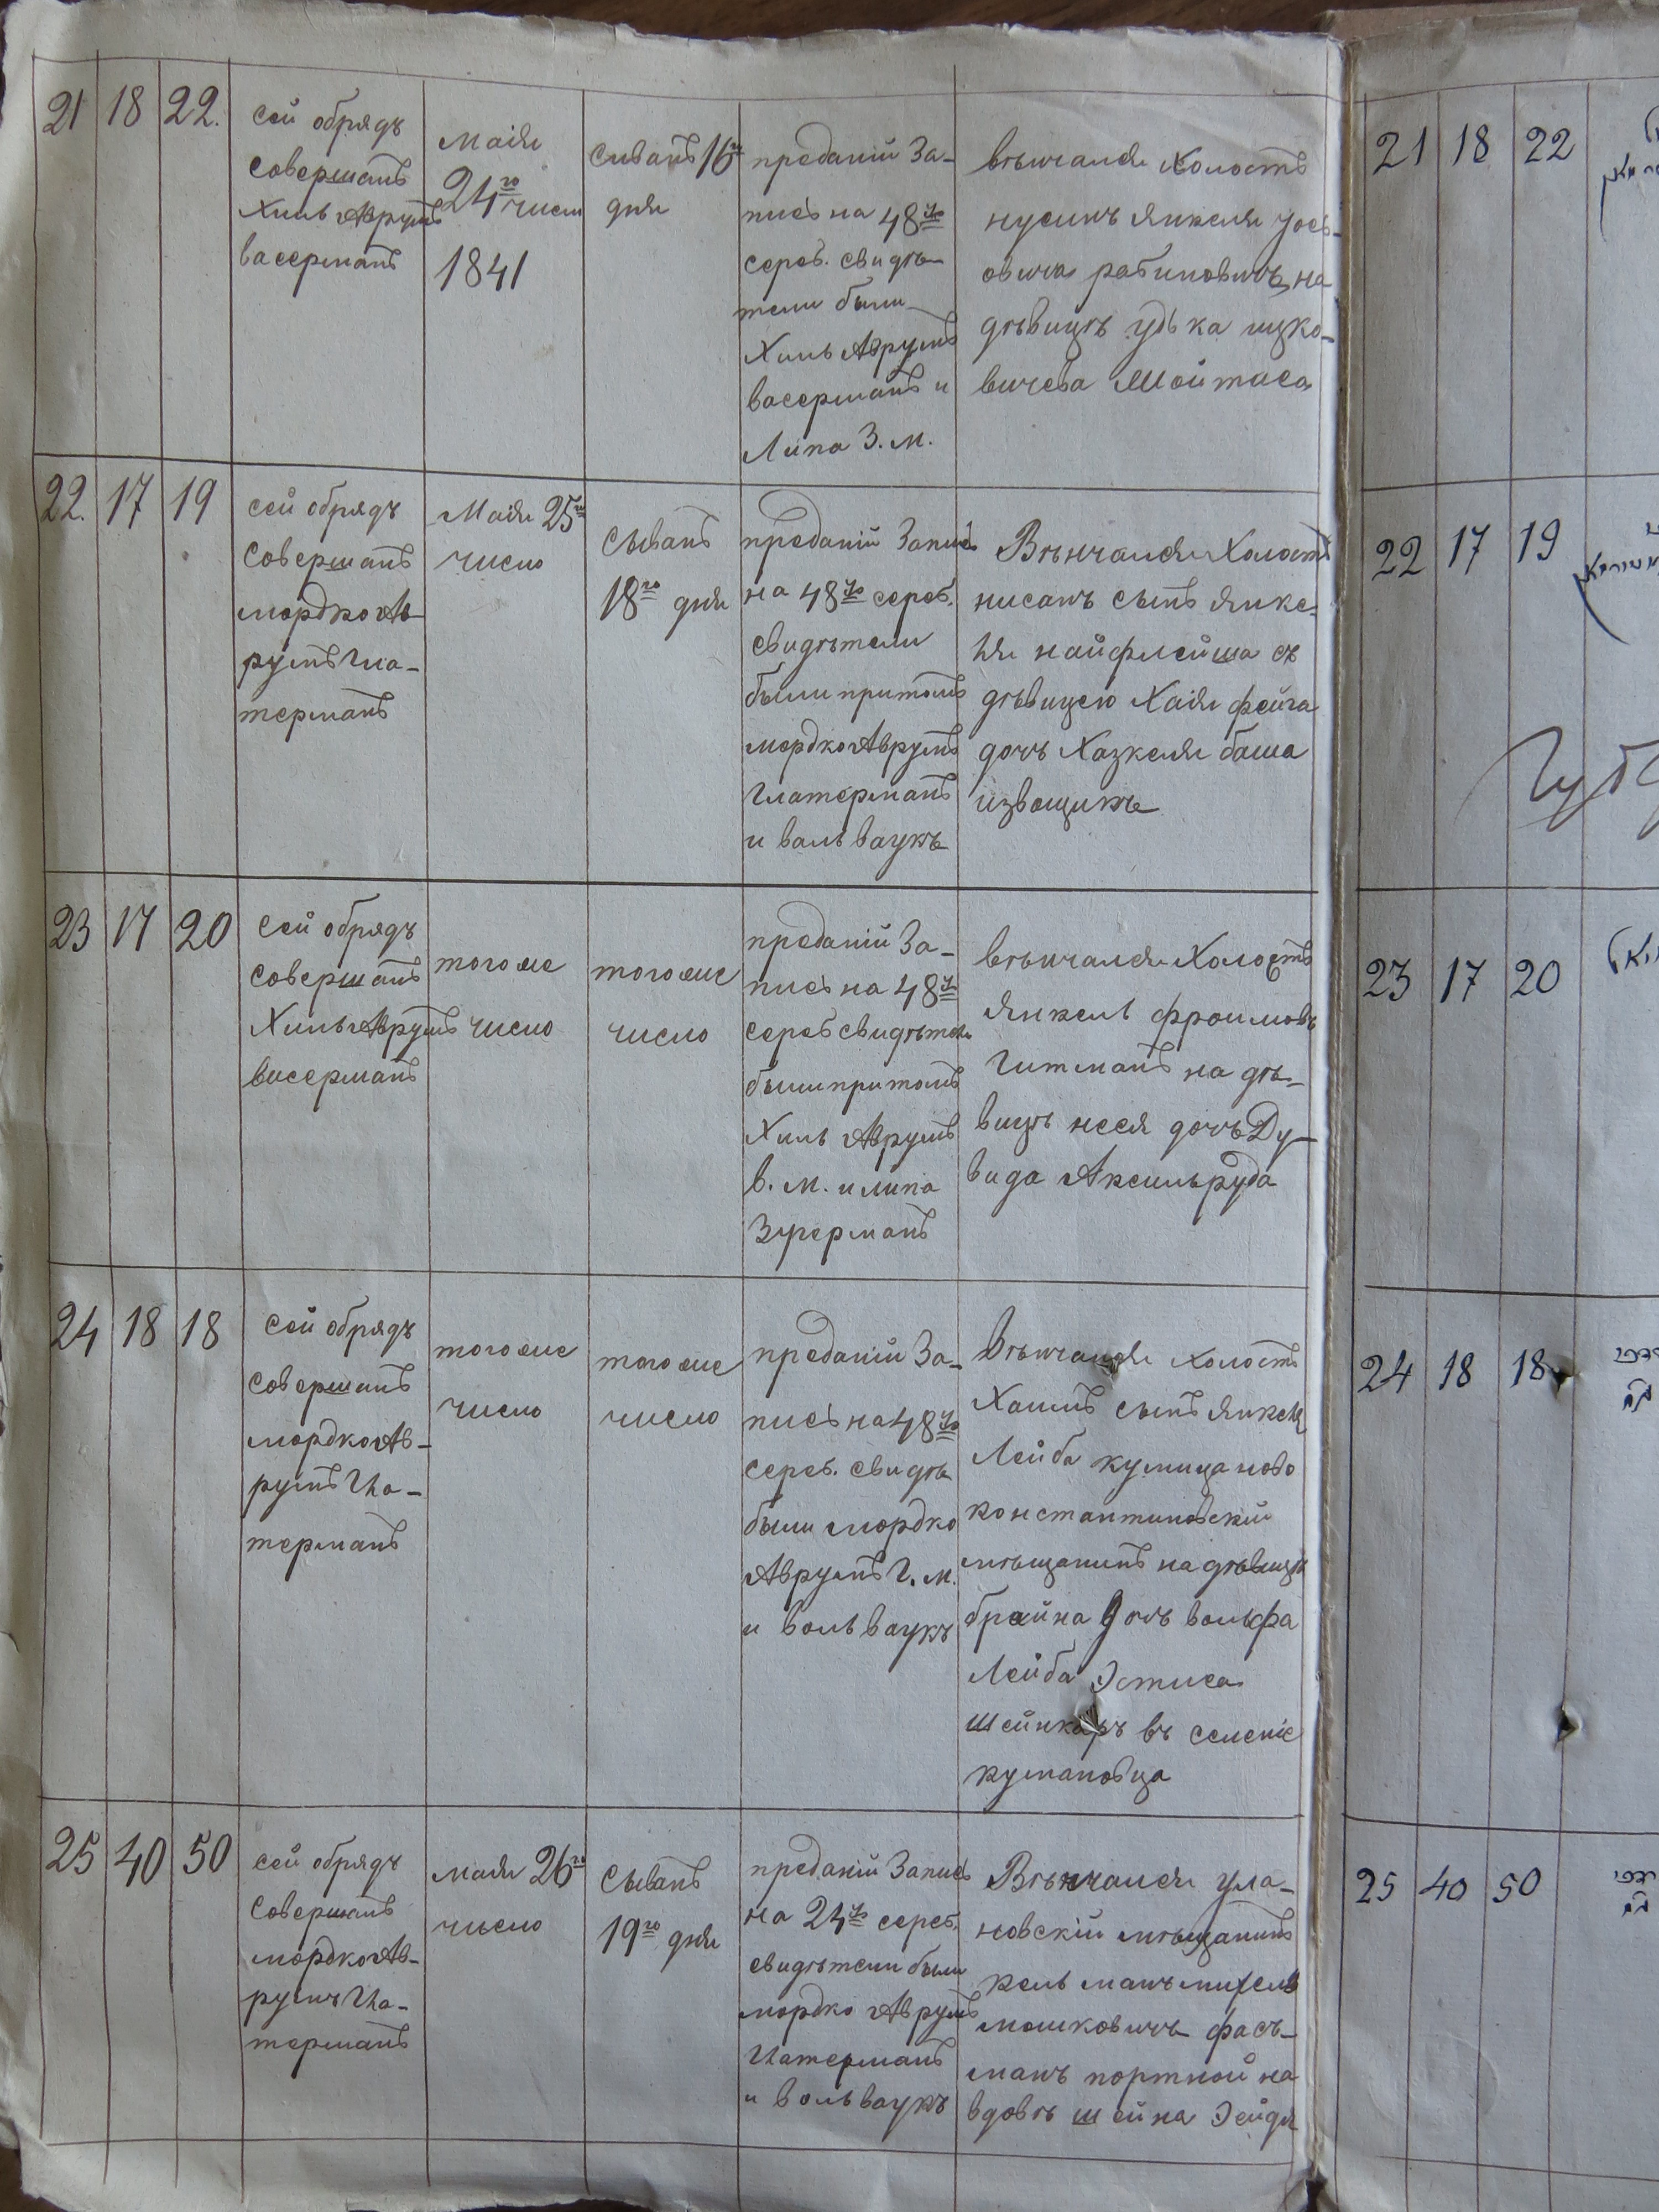 21 18 22.
сей обрядъ
совершалъ
Хиль Аврумъ
васерманъ
маія
24го числа
1841
сиванъ 16го
дня
преданій За-
пись на 48
сереб. свидѣ-
тели были
Хиль Аврумъ
васерманъ и
Липа З. м.
вѣнчался холостъ
нусинъ Янкеля Іось-
овича рабиновичъ на
дѣвицѣ удька ицко-
вичева Шойтаса
22. 17 19
сей обрядъ
совершалъ
мордко Ав-
румъ Гла-
терманъ
Маія 25го
число
сыванъ
18го дня
преданій Запись
на 48 сереб.
свидѣтели
были притомъ
мордко Аврумъ
Глатерманъ
и воль ваукъ
Вѣнчался Холостъ
нисанъ сынъ Янке-
ля найфлейша съ
дѣвицею Хаія фейга
дочь Хазкеля баша
извощикъ
23 17 20
сей обрядъ
совершалъ
Хиль Аврумъ
васерманъ
тогоже
число
тогоже
число
преданій За-
пись на 48
сереб свидѣтели
были притомъ
Хиль Аврумъ
в. м. и липа
Зукерманъ
вѣнчался Холостъ
Янкель фроимовъ
Гитманъ на дѣ-
вицѣ неся дочь Ду-
вида Аксильруда
24 18 18
сей обрядъ
совершалъ
мордко Ав-
румъ Гла-
терманъ
тогоже
число
тогоже
число
преданій За-
пись на 48
сереб. свидѣ
были мордко
Аврумъ Г. м.
и воль ваукъ
Вѣнчался холостъ
Хаимъ сынъ Янкеля
Лейба кулица ново
константиновскій
мѣщанинъ на дѣвицѣ
брайна дочь вольфа
Лейба Эстиса
шейнкаръ въ селеніе
кумановца
25 40 50
сей обрядъ
совершалъ
мордко Ав-
румъ Гла-
терманъ
маія 26го
число
сыванъ
19го дня
преданій Запись
на 24 сереб.
свидѣтели были
мордко Аврумъ
Глатерманъ
и воль ваукъ
Вѣнчался ула-
новскій мѣщанинъ
кельманъ
мошковичъ фасъ-
манъ портной на
вдовѣ шейна Зейдя
21 18 22
22 17 19
23 17 20
24 18 18
25 40 50